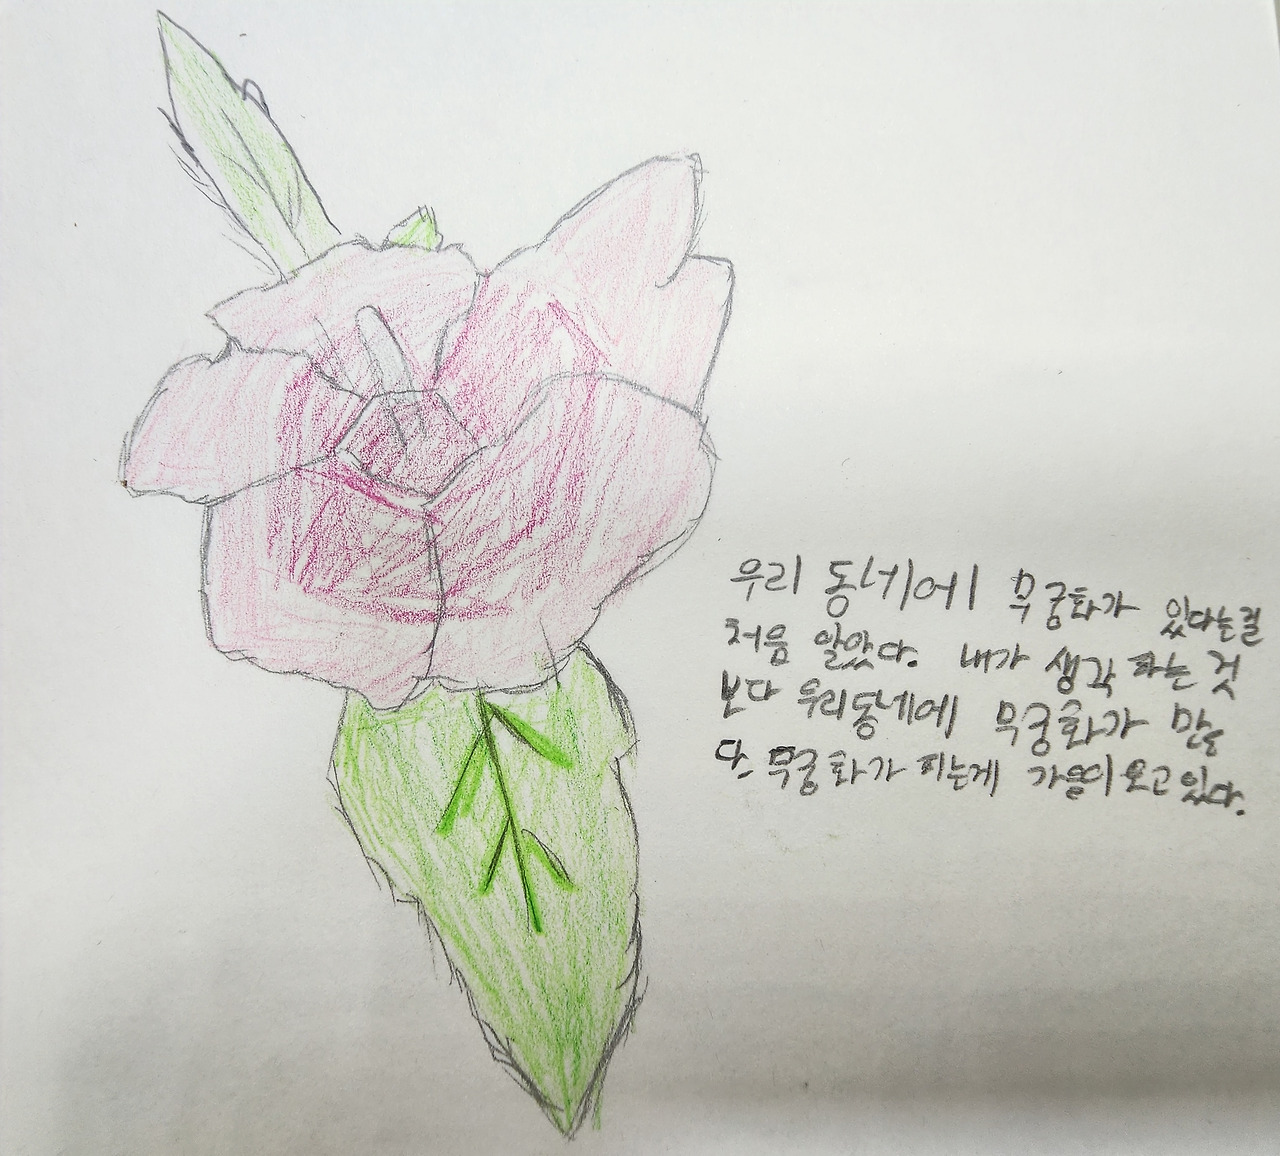 우리 동네에 무궁화가 있다는걸
처음 알았다. 내가 생각 하는 것
보다 우리동네에 무궁화가 많
다. 무궁화가 피는게 가을이 오고있다.